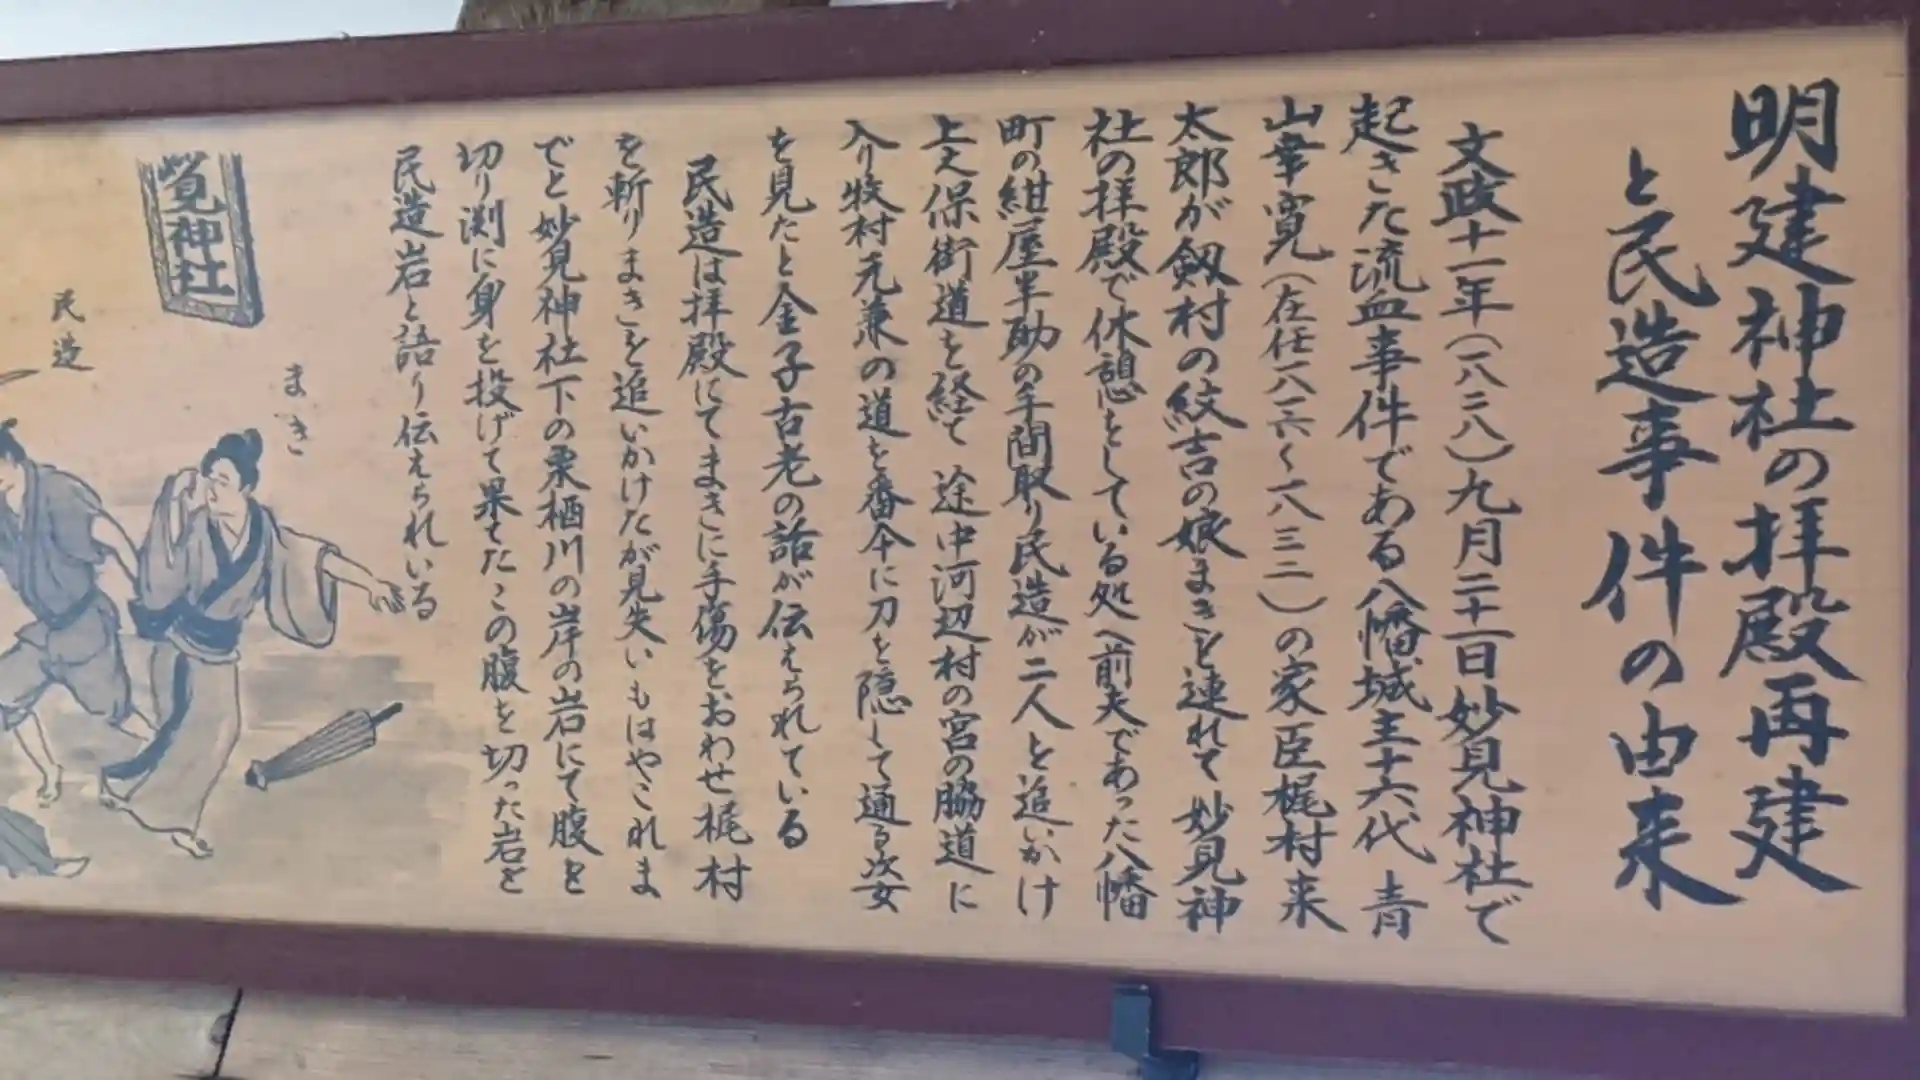 明建神社の拝殿再建
と民造事件の由来
文政十一年(一八二八)九月二十一日妙見神社で
起きた流血事件である八幡城主十六代 青
山幸寛(在任一八一六~一八三二)の家臣梶村来
太郎が剱村の紋吉の娘まきを連れて妙見神
社の拝殿で休憩をしている処へ前夫であった八幡
町の紺屋半助の手間取り民造が二人を追いかけ
上之保街道を経て 途中河辺村の宮の脇道に
入り牧村元兼の道を番傘に刀を隠して通る次女
を見たと金子古老の話が伝えられている
民造は拝殿にてまきに手傷をおわせ梶村
を斬りまきを追いかけたが見失いもはやこれま
でと妙見神社下の栗栖川の岸の岩にて腹を
切り渕に身を投げて果てたこの腹を切った岩を
民造岩と語り伝えられいる
覚神社
まき
民造